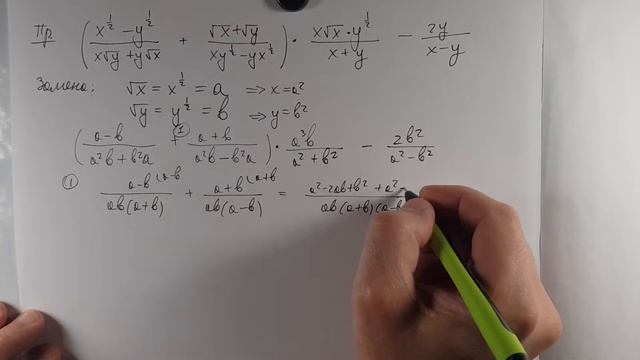 Пр. ( (x^{1/2} − y^{1/2})/(x√y + y√x) + (√x + √y)/(xy^{1/2} − yx^{1/2}) ) · (x√x · y^{1/2})/(x + y) − 2y/(x − y)
Замена: √x = x^{1/2} = a ⇒ x = a²
√y = y^{1/2} = b ⇒ y = b²
( (a − b)/(a²b + b²a) +① (a + b)/(a²b − b²a) ) · a³b/(a² + b²) − 2b²/(a² − b²)
① (a − b ⌊a−b)/(ab(a + b)) + (a + b ⌊a+b)/(ab(a − b)) = (a² − 2ab + b² + a²)/(ab(a + b)(a − b